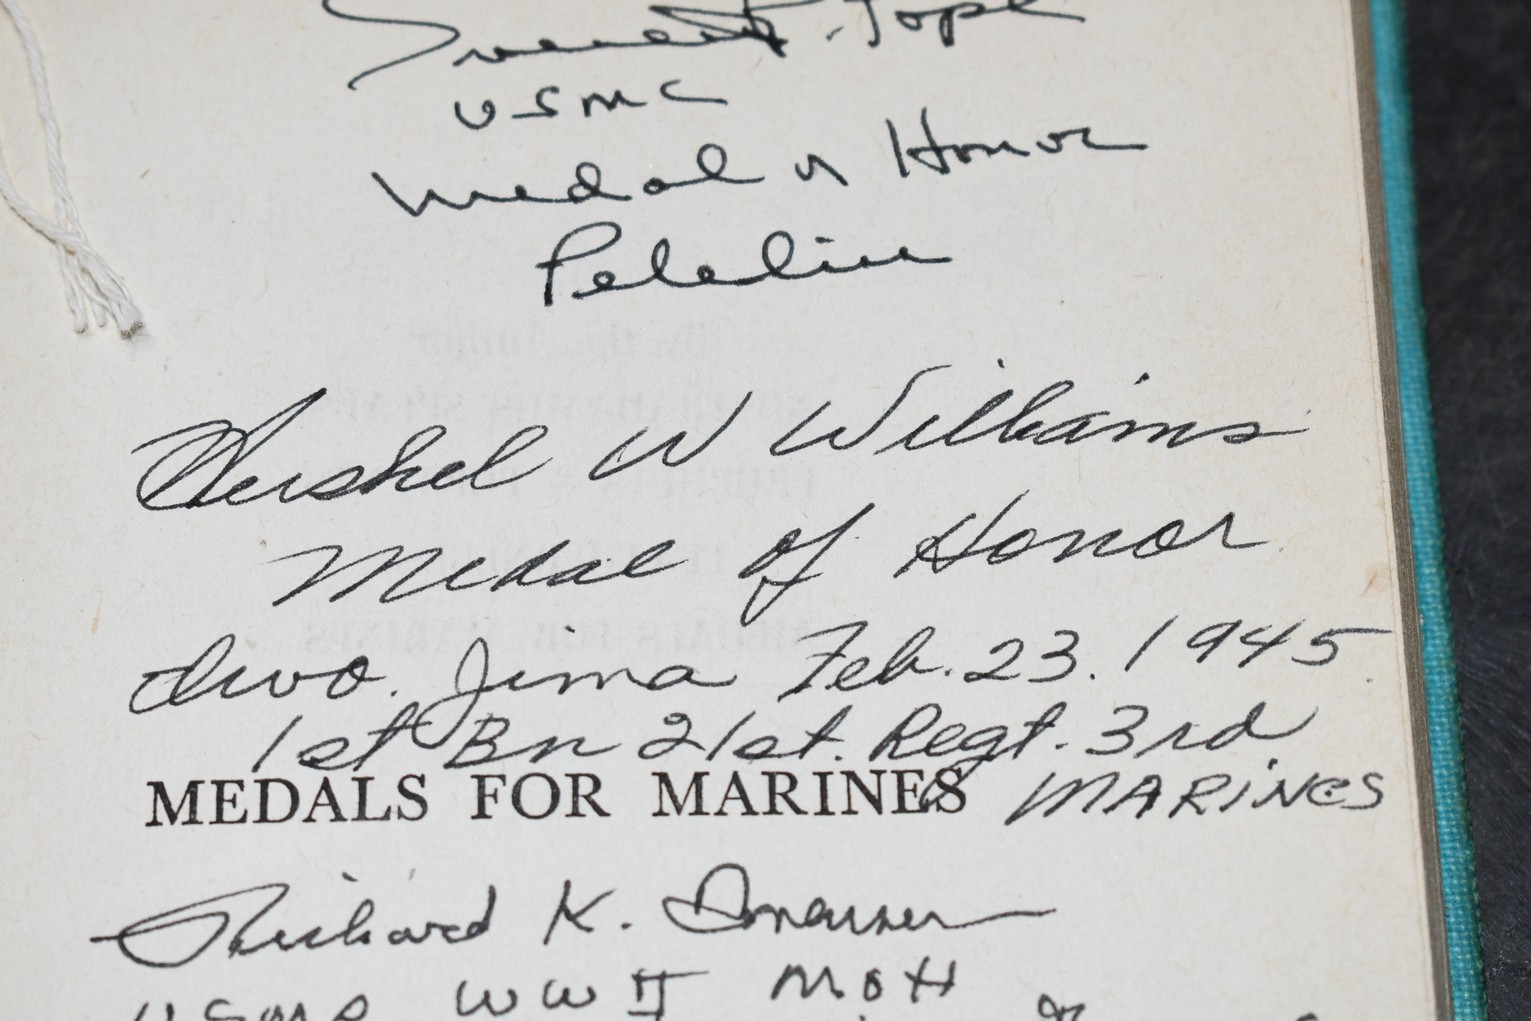 Everett P. Pope
USMC
Medal of Honor
Peleliu
Hershel W Williams
Medal of Honor
Iwo. Jima Feb. 23. 1945
1st Bn 21st. Regt. 3rd
MEDALS FOR MARINES MARINES
Richard K. Sorenson
USMR WWII MOH